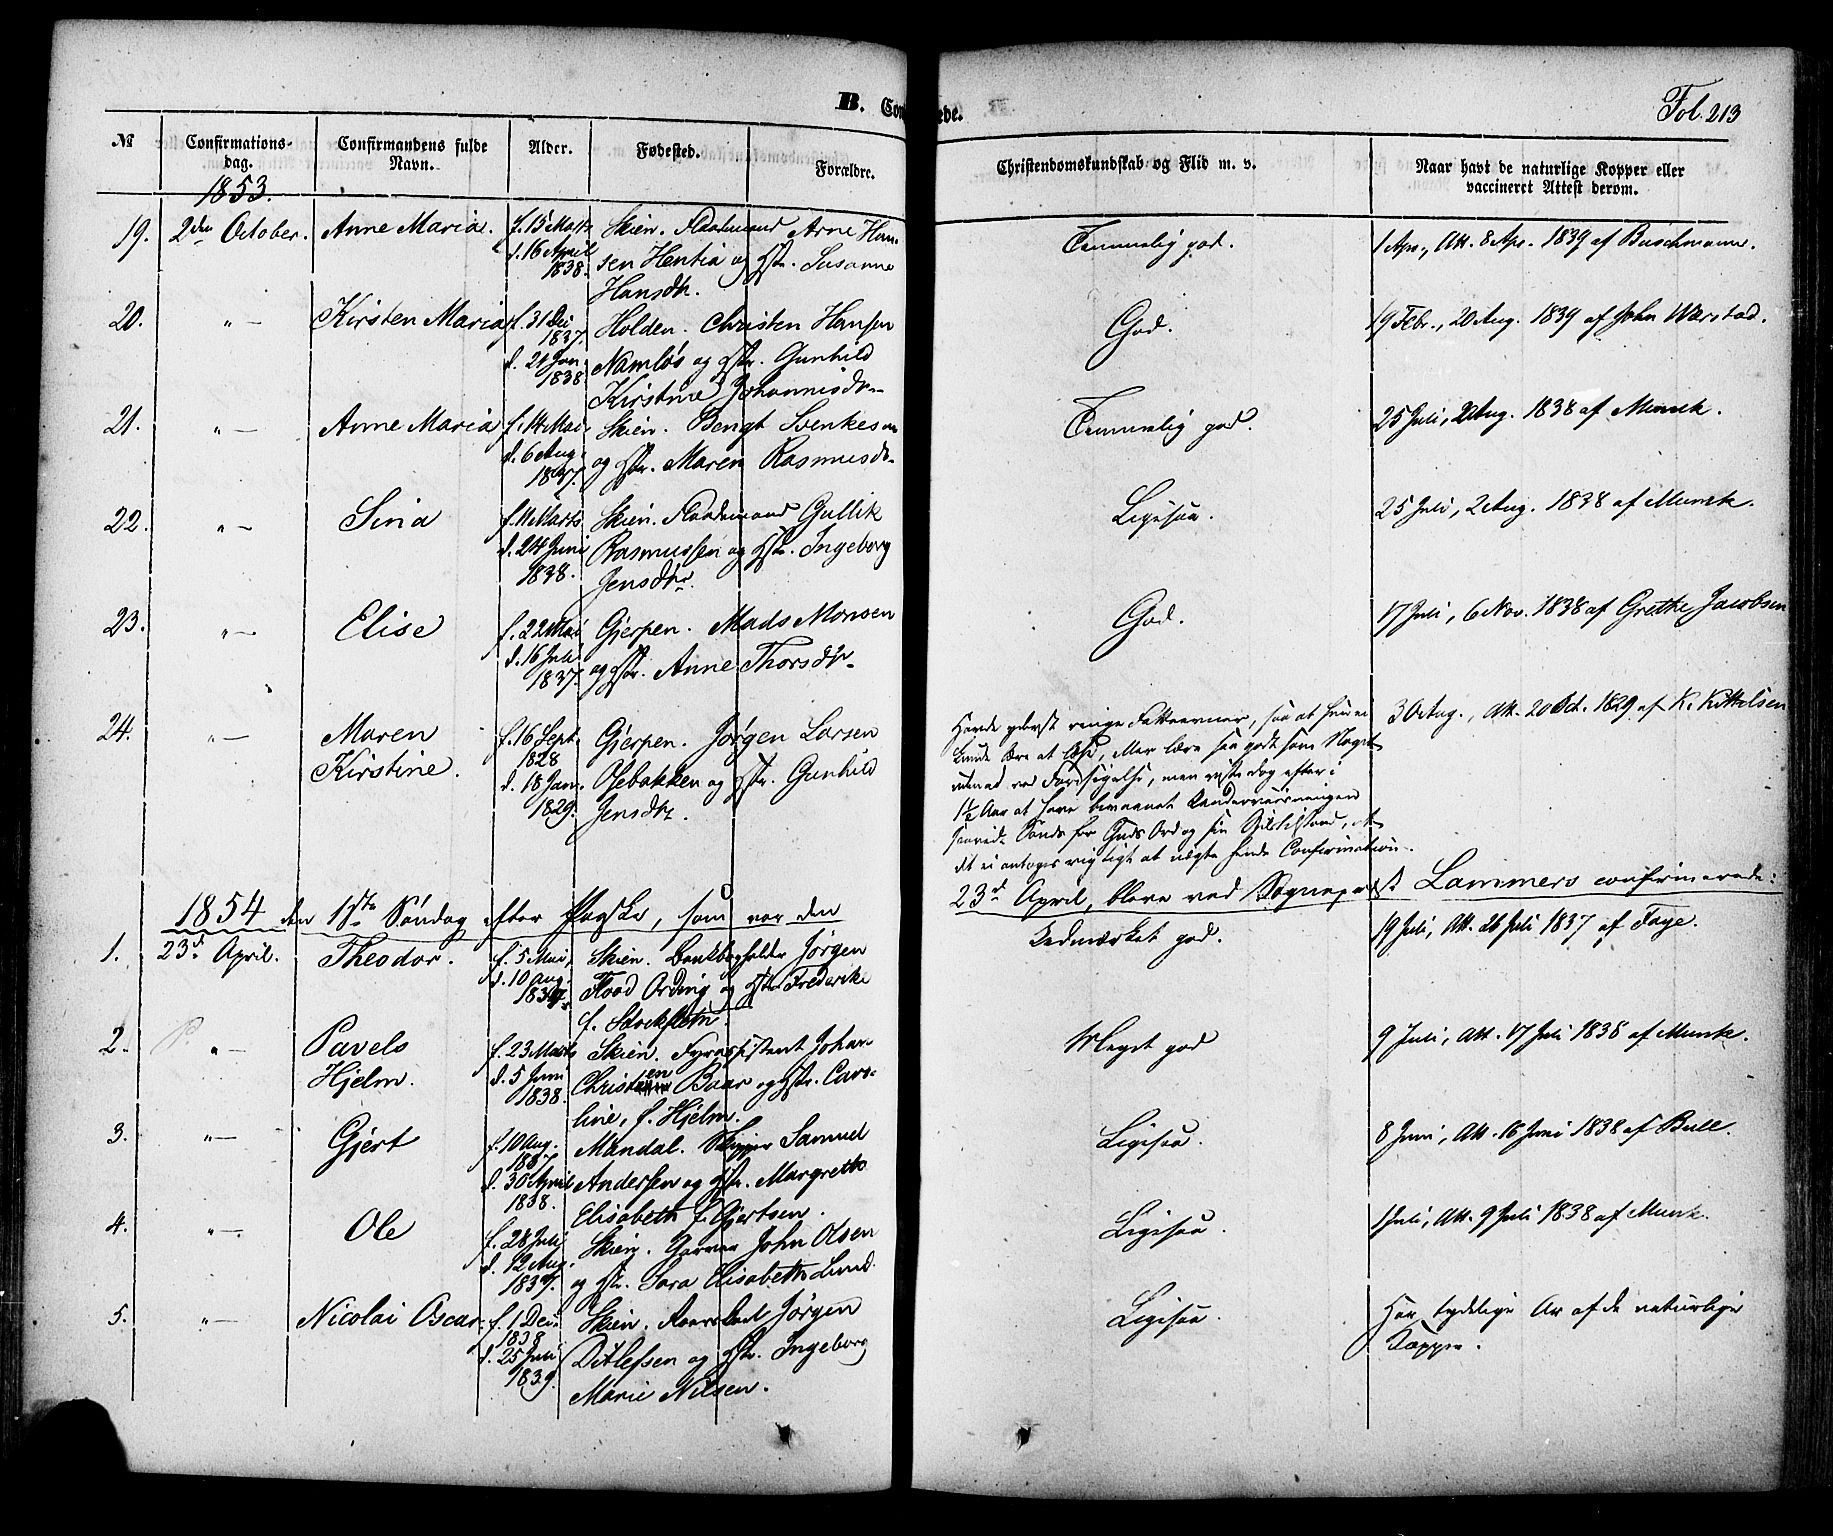 B. Con
ede.
Fol. 213
№
Confirmations-
dag.
Confirmandens fulde
Navn.
Alder.
Fødested.
Forældre.
Christendomskundskab og Flid m. v.
Naar havt de naturlige Kopper eller
vaccineret Attest derom.
1853.
19. 2den October. Anne Maria. f. 15 Marts Skien. Arne Han-
d. 16 April sen Hentia og Hstr. Susanne
1838. Hansdtr.
Temmelig god.
1 Apr., Att. 8 Apr. 1839 af Buschmann.
20. " — Kirsten Maria f. 31 Dec Holden. Christen Hansen
1837. Namløs og Hstr. Gunhild
d. 21 Jan. Kirstine Johannisdr.
1838.
God.
19 Febr., 20 Aug. 1839 af John Warstad.
21. " — Anne Maria f. 14 Mai. Skien. Bengt Svenkesen
d. 6 Aug. og Hstr. Maren Rasmusdr.
1837.
Temmelig god.
25 Juli, 2 Aug. 1838 af Munck.
22. " — Sina f. 11 Marts Skien. Gullik
d. 24 Juni Rasmussen og Hstr. Ingeborg
1838. Jensdtr.
Ligesaa.
25 Juli, 2 Aug. 1838 af Munck.
23. " — Elise f. 22 Mai Gjerpen. Mads Monsen
d. 16 Juli og Hstr. Anne Thorsdtr.
1837.
God.
17 Juli, 6 Nov. 1838 af Grethe Jacobsen
24. " — Maren f. 16 Sept. Gjerpen. Jørgen Larsen
Kirstine. 1828 Osebakken og Hstr. Gunhild
d. 18 Jan. Jensdtr.
1829.
Havde yderst ringe Fatteevner, saa at hun ei
kunde lære at læse, eller lære saa godt som Noget
udenad ved Forsigelse, men viste dog efter i
1½ Aar at have Underviisningen
Sands for Guds Ord og sin
det ei antoges rigtigt at nægte hende Confirmation.
30 Aug., Att. 20 Oct. 1829 af K. Kittelsen
1854 den 1ste Søndag efter Paaske, som var den
23d April, bleve ved Sognepræst Lammers confirmerede:
1. 23d April. Theodor. f. 5 Mai, Skien. Bankbogholder Jørgen
d. 10 Aug. Flood Ording og Hstr. Frederike
1837. f. Stockfleth.
Udmærket god.
19 Juli, Att. 26 Juli 1837 af Faye.
2. " — Pavels f. 23 Marts Skien. Johan
Hjelm. d. 5 Juni Christen Baar og Hstr. Caro-
1838. line, f. Hjelm.
Meget god
9 Juli, Att. 17 Juli 1838 af Munck.
3. " — Gjert f. 10 Aug. Mandal. Skipper Samuel
1837 Andersen og Hstr. Margrethe
d. 30 April Elisabeth f. Gjertsen.
1838.
Ligesaa.
8 Juni, Att. 16 Juni 1838 af Bull.
4. " — Ole f. 28 Juli Skien. Garver John Olsen
d. 12 Aug. og Hstr. Sara Elisabeth Lund.
1837.
Ligesaa.
1 Juli, Att. 9 Juli 1838 af Munck.
5. " — Nicolai Oscar. f. 1 Dec. Skien. Jørgen
1838 Ditlefsen og Hstr. Ingeborg
d. 25 Juli Marie Nilsen.
1839.
Ligesaa.
Har tydelige Ar af de naturlige
Kopper.